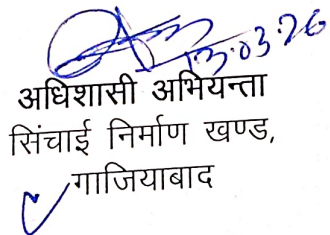 13.03.26
अधिशासी अभियन्ता
सिंचाई निर्माण खण्ड,
गाजियाबाद